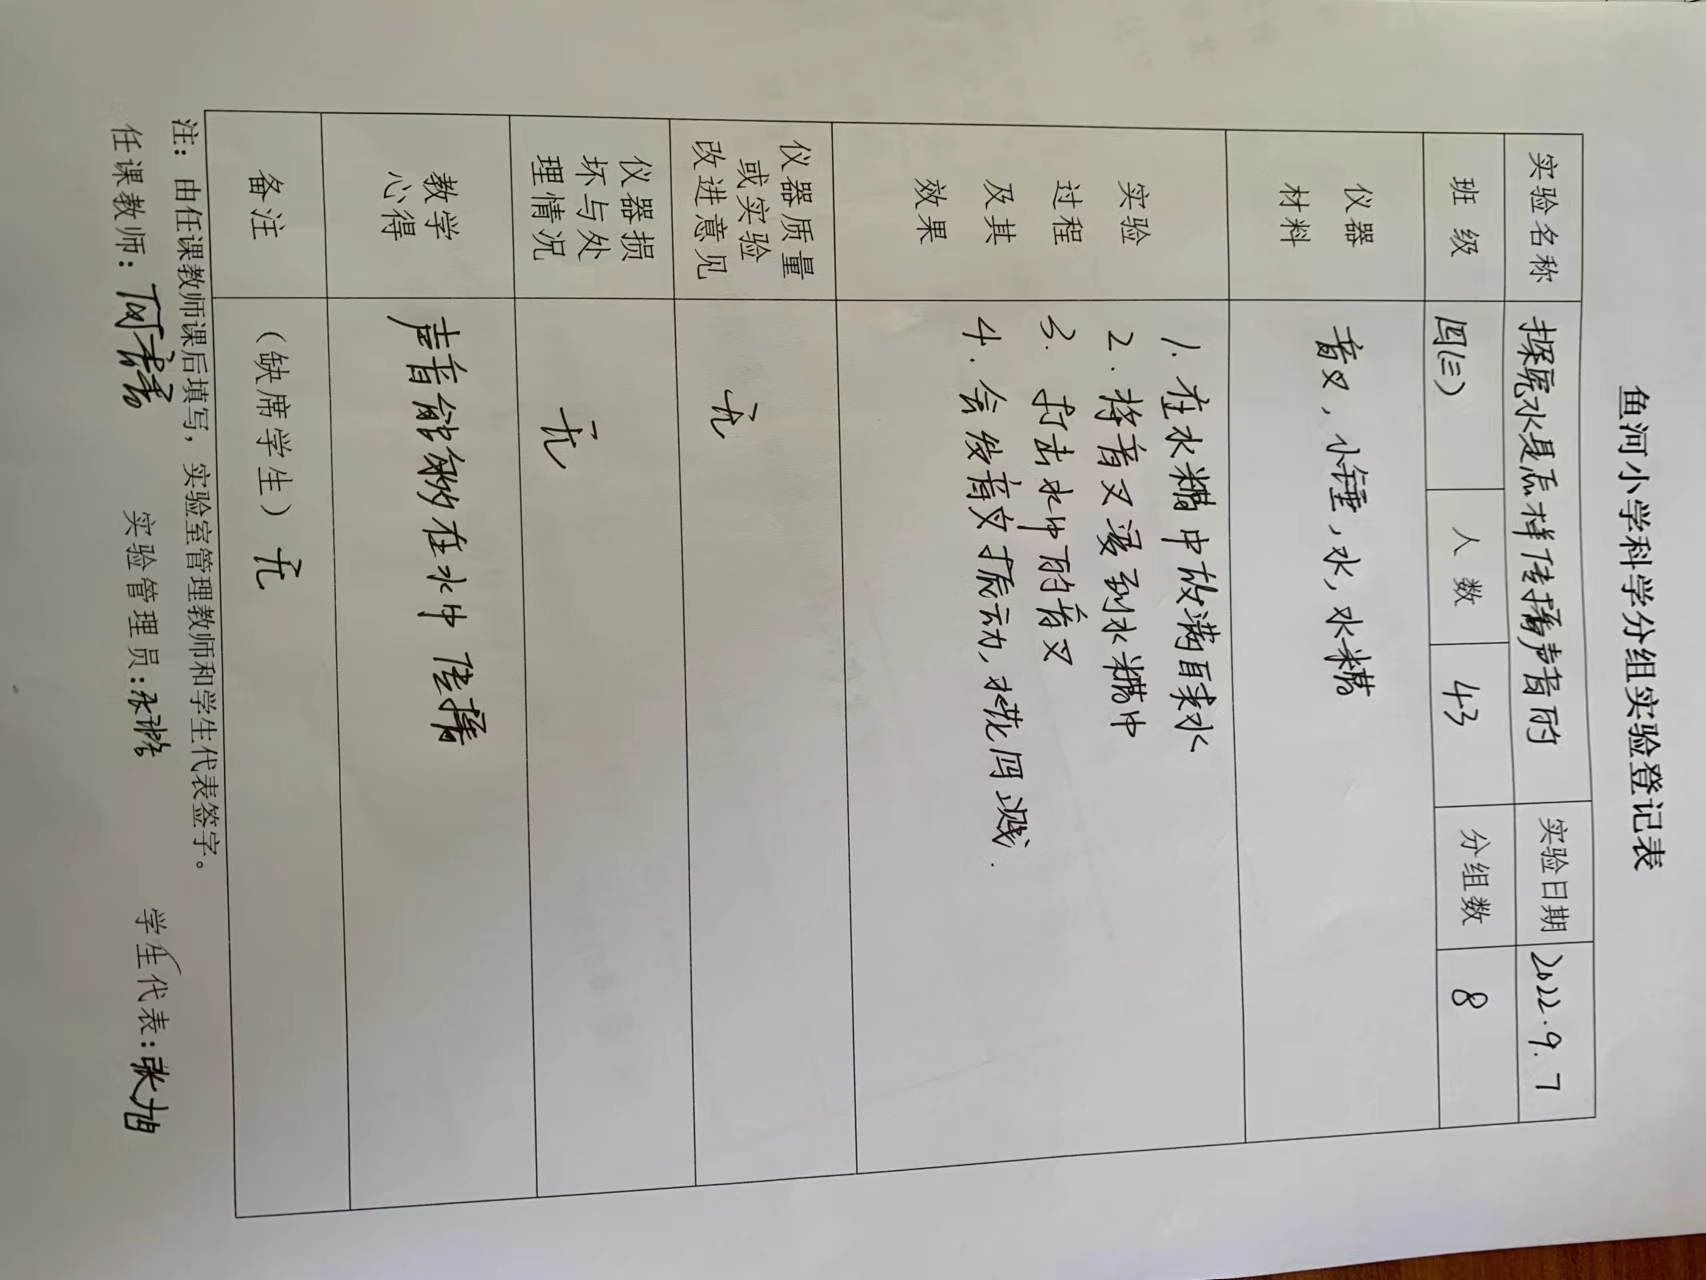 鱼河小学科学分组实验登记表
实验名称 探究水是怎样传播声音的 实验日期 2022.9.7
班级 四(三) 人数 43 分组数 8
仪器
材料
音叉，小锤，水，水糟
实验
过程
及其
效果
1. 在水糟中放满自来水
2. 将音叉浸到水糟中
3. 打击水中的音叉
4. 会发音叉振动，水花四溅.
仪器质量
或实验
改进意见
无
仪器损
坏与处
理情况
无
教学
心得
声音能够在水中传播
备注 （缺席学生）无
注：由任课教师课后填写，实验室管理教师和学生代表签字。
任课教师： 实验管理员： 学生代表：张旭